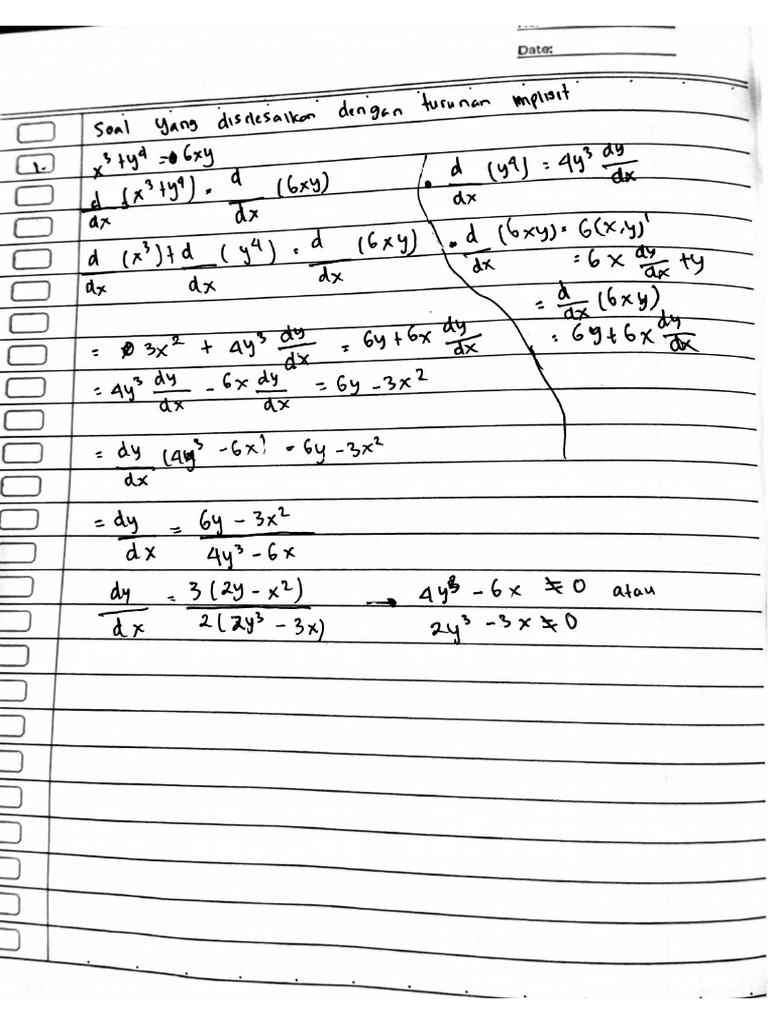 Date:
Soal yang diselesaikan dengan turunan implisit
1. x³+y⁴ = 6xy
d/dx (x³+y⁴) = d/dx (6xy)
d/dx (x³) + d/dx (y⁴) = d/dx (6xy)
= 3x² + 4y³ dy/dx = 6y + 6x dy/dx
= 4y³ dy/dx - 6x dy/dx = 6y - 3x²
= dy/dx (4y³ - 6x) = 6y - 3x²
= dy/dx = 6y - 3x² / 4y³ - 6x
dy/dx = 3(2y - x²) / 2(2y³ - 3x) → 4y³ - 6x ≠ 0 atau
2y³ - 3x ≠ 0
• d/dx (y⁴) = 4y³ dy/dx
• d/dx (6xy) = 6(x.y)'
= 6 x dy/dx + y
= d/dx (6xy)
= 6y + 6x dy/dx